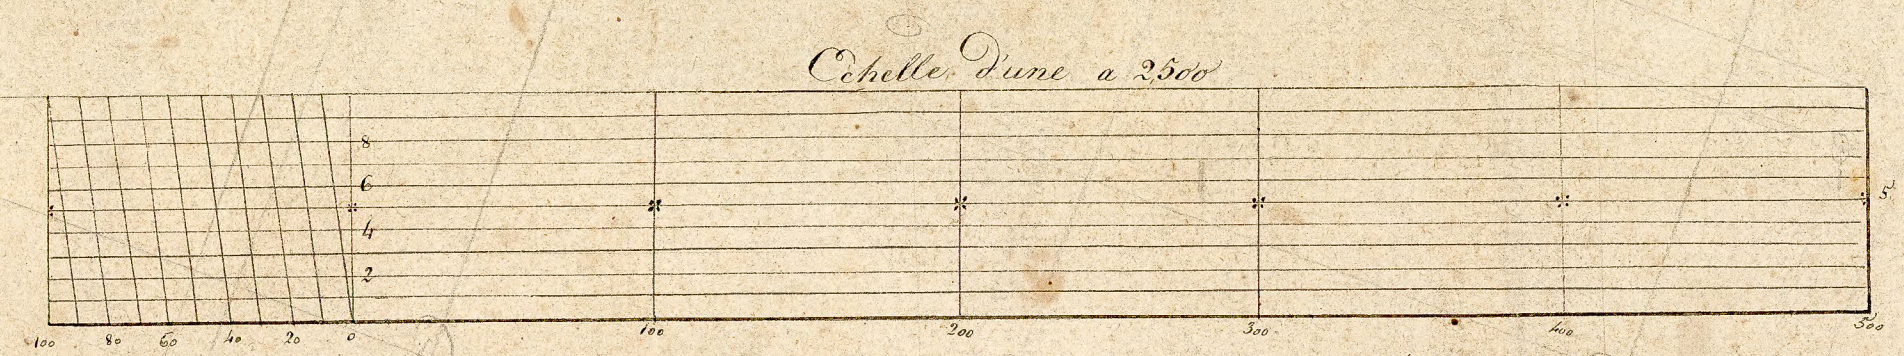 Echelle d'une a 2500
8
6
5
4
2
100 80 60 40 20 0 100 200 300 400 500